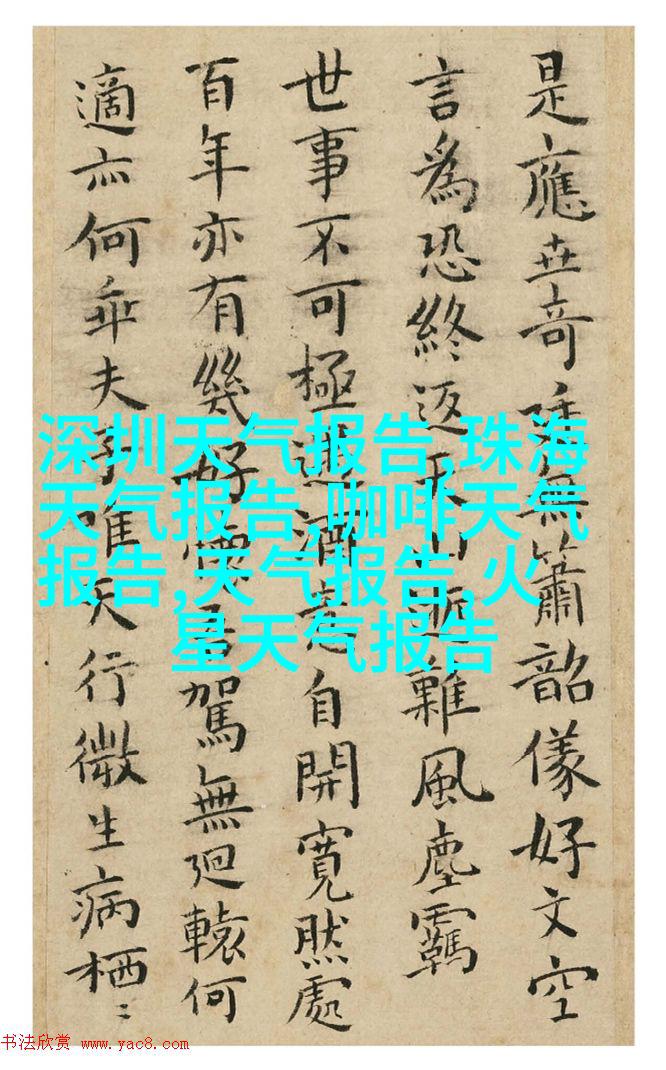 是應世奇無簫韶儀好文空
言爲恐終返山難風塵羈
世事不可極酒自開寬然處
百年亦有幾好駕無迴轅何
適亦何乖夫子唯天行微生病栖〻
深圳天气报告,珠海
天气报告,咖啡天气
报告,天气报告,火
星天气报告
书法欣赏 www.yac8.com